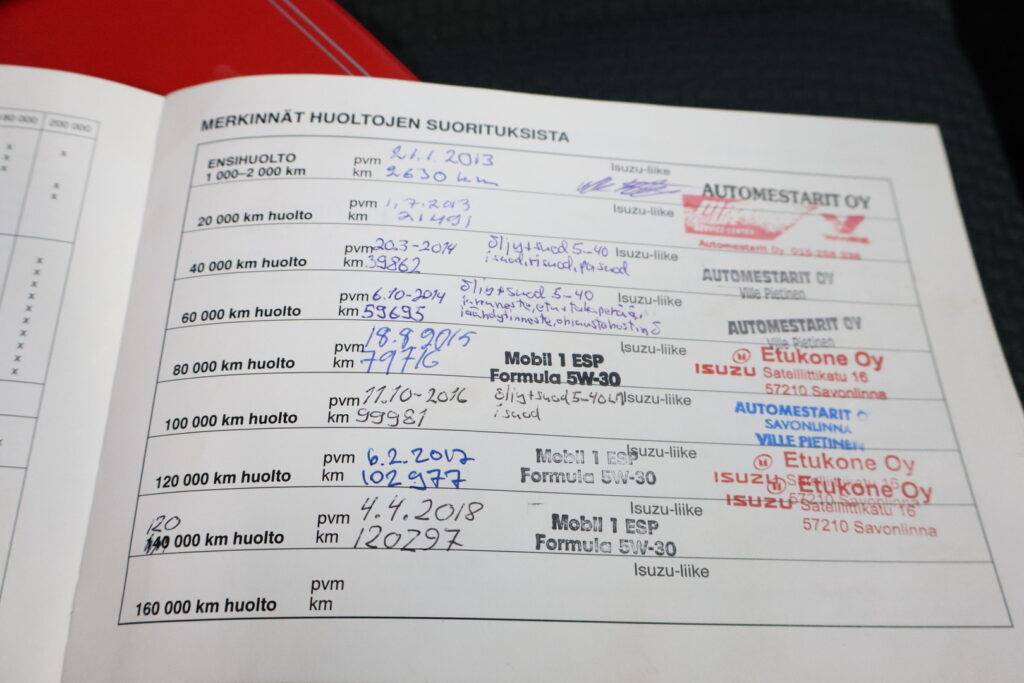 80 000 200 000
x x
x x
x x
x
x
x
x
x
x
x
x
x
MERKINNÄT HUOLTOJEN SUORITUKSISTA
ENSIHUOLTO pvm 21.1.2013 Isuzu-liike
1 000–2 000 km km 2630 km AUTOMESTARIT OY
20 000 km huolto pvm 1.7.2013 Isuzu-liike
km 21491 SERVICE CENTER
Automestarit Oy 015-258 338
40 000 km huolto pvm 20.3-2014 öljy+suod 5-40 Isuzu-liike AUTOMESTARIT OY
km 39862 isuod, risuod, pasuod Ville Pietinen
60 000 km huolto pvm 6.10-2014 öljy+suod 5-40 Isuzu-liike
km 59695 AUTOMESTARIT OY
Ville Pietinen
80 000 km huolto pvm 18.8.2015 Mobil 1 ESP Isuzu-liike Etukone Oy
km 79716 Formula 5W-30 ISUZU Satelliittikatu 16
57210 Savonlinna
100 000 km huolto pvm 11.10-2016 öljy+suod 5-40 Isuzu-liike AUTOMESTARIT
km 99981 isuod SAVONLINNA
VILLE PIETINEN
120 000 km huolto pvm 6.2.2017 Mobil 1 ESP Isuzu-liike Etukone Oy
km 102977 Formula 5W-30 ISUZU
57210 Savonlinna
120
140 000 km huolto pvm 4.4.2018 Mobil 1 ESP Isuzu-liike Etukone Oy
km 120297 Formula 5W-30 ISUZU Satelliittikatu 16
57210 Savonlinna
160 000 km huolto pvm Isuzu-liike
km